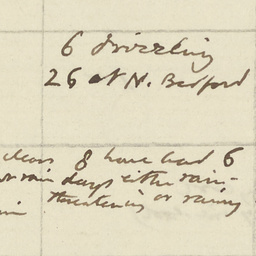 6 drizzling
26 at N. Bedford
clear 8 have had 6
or rain days either rain-
threatening or rainy